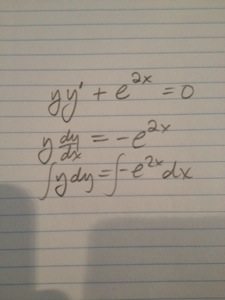 yy' + e^{2x} = 0
y dy/dx = -e^{2x}
∫y dy = ∫-e^{2x} dx